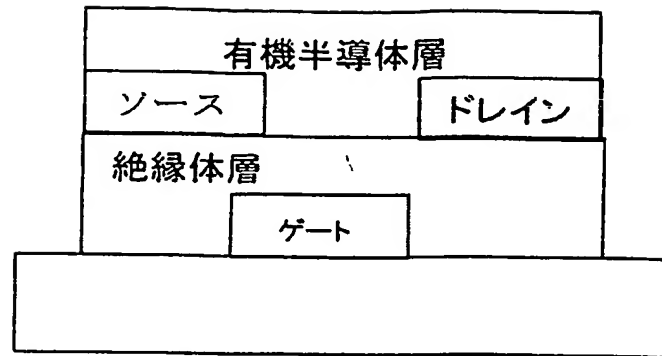 有機半導体層
ソース
ドレイン
絶縁体層
ゲート